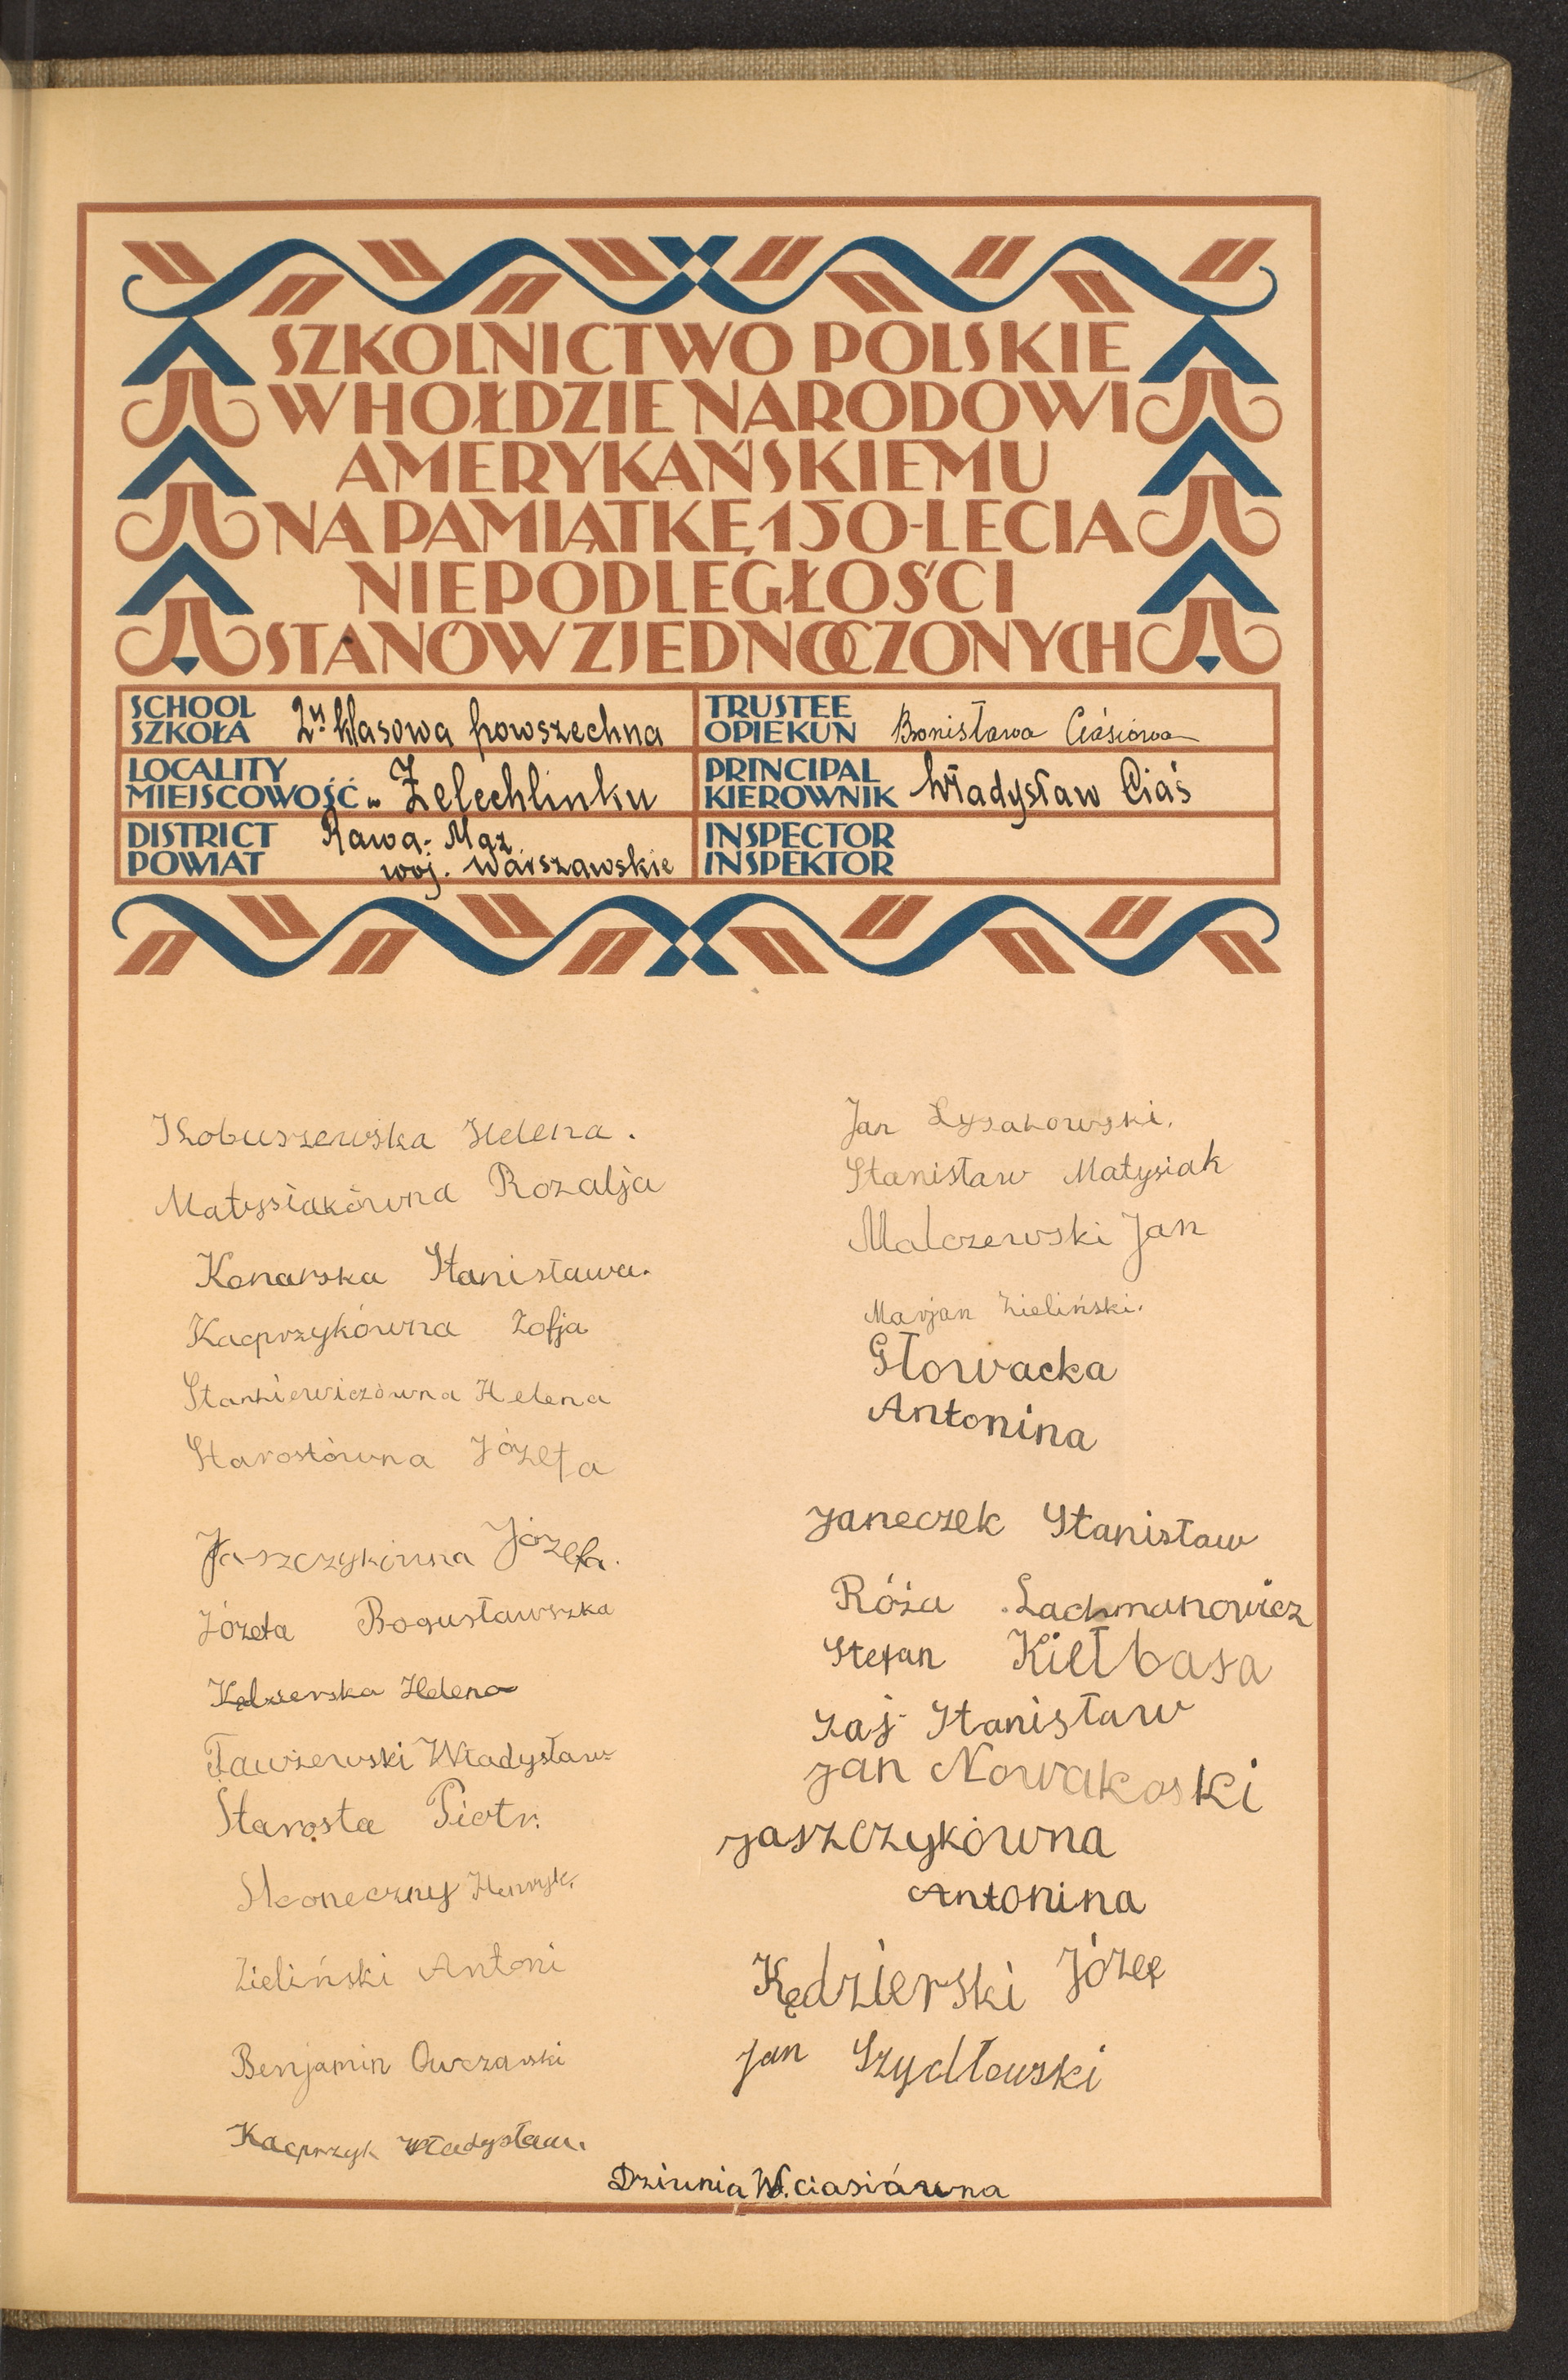 SZKOLNICTWO POLSKIE
W HOŁDZIE NARODOWI
AMERYKAŃSKIEMU
NA PAMIĄTKĘ 150-LECIA
NIEPODLEGŁOŚCI
STANÓW ZJEDNOCZONYCH
SCHOOL
SZKOŁA
2kl klasowa powszechna
TRUSTEE
OPIEKUN
Bronisława Ciásiowa
LOCALITY
MIEJSCOWOŚĆ
w Żelechlinku
PRINCIPAL
KIEROWNIK
Władysław Ciáś
DISTRICT
POWIAT
Rawa-Maz
woj. Warszawskie
INSPECTOR
INSPEKTOR
Kobuszewska Helena.
Matysiakówna Rozalja
Konarska Stanisława.
Kacprzykówna Zofja
Stankiewiczówna Helena
Starostówna Józefa
Jaszczykówna Józefa.
Józefa Bogusławszka
Kędzierska Helena
Władysław
Starosta Piotr.
Słoneczny Henryk.
Zieliński Antoni
Benjamin Owczarski
Kacprzyk Władysław.
Jan Łysakowski.
Stanisław Matysiak
Malczewski Jan
Marjan Zieliński.
Głowacka
Antonina
Janeczek Stanisław
Róża Lachmanowicz
Stefan Kiełbasa
Zaj Stanisław
Jan Nowakoski
Jaszczykówna
Antonina
Kędzierski Józef
Jan Szydłowski
Dziunia W. Ciasiówna